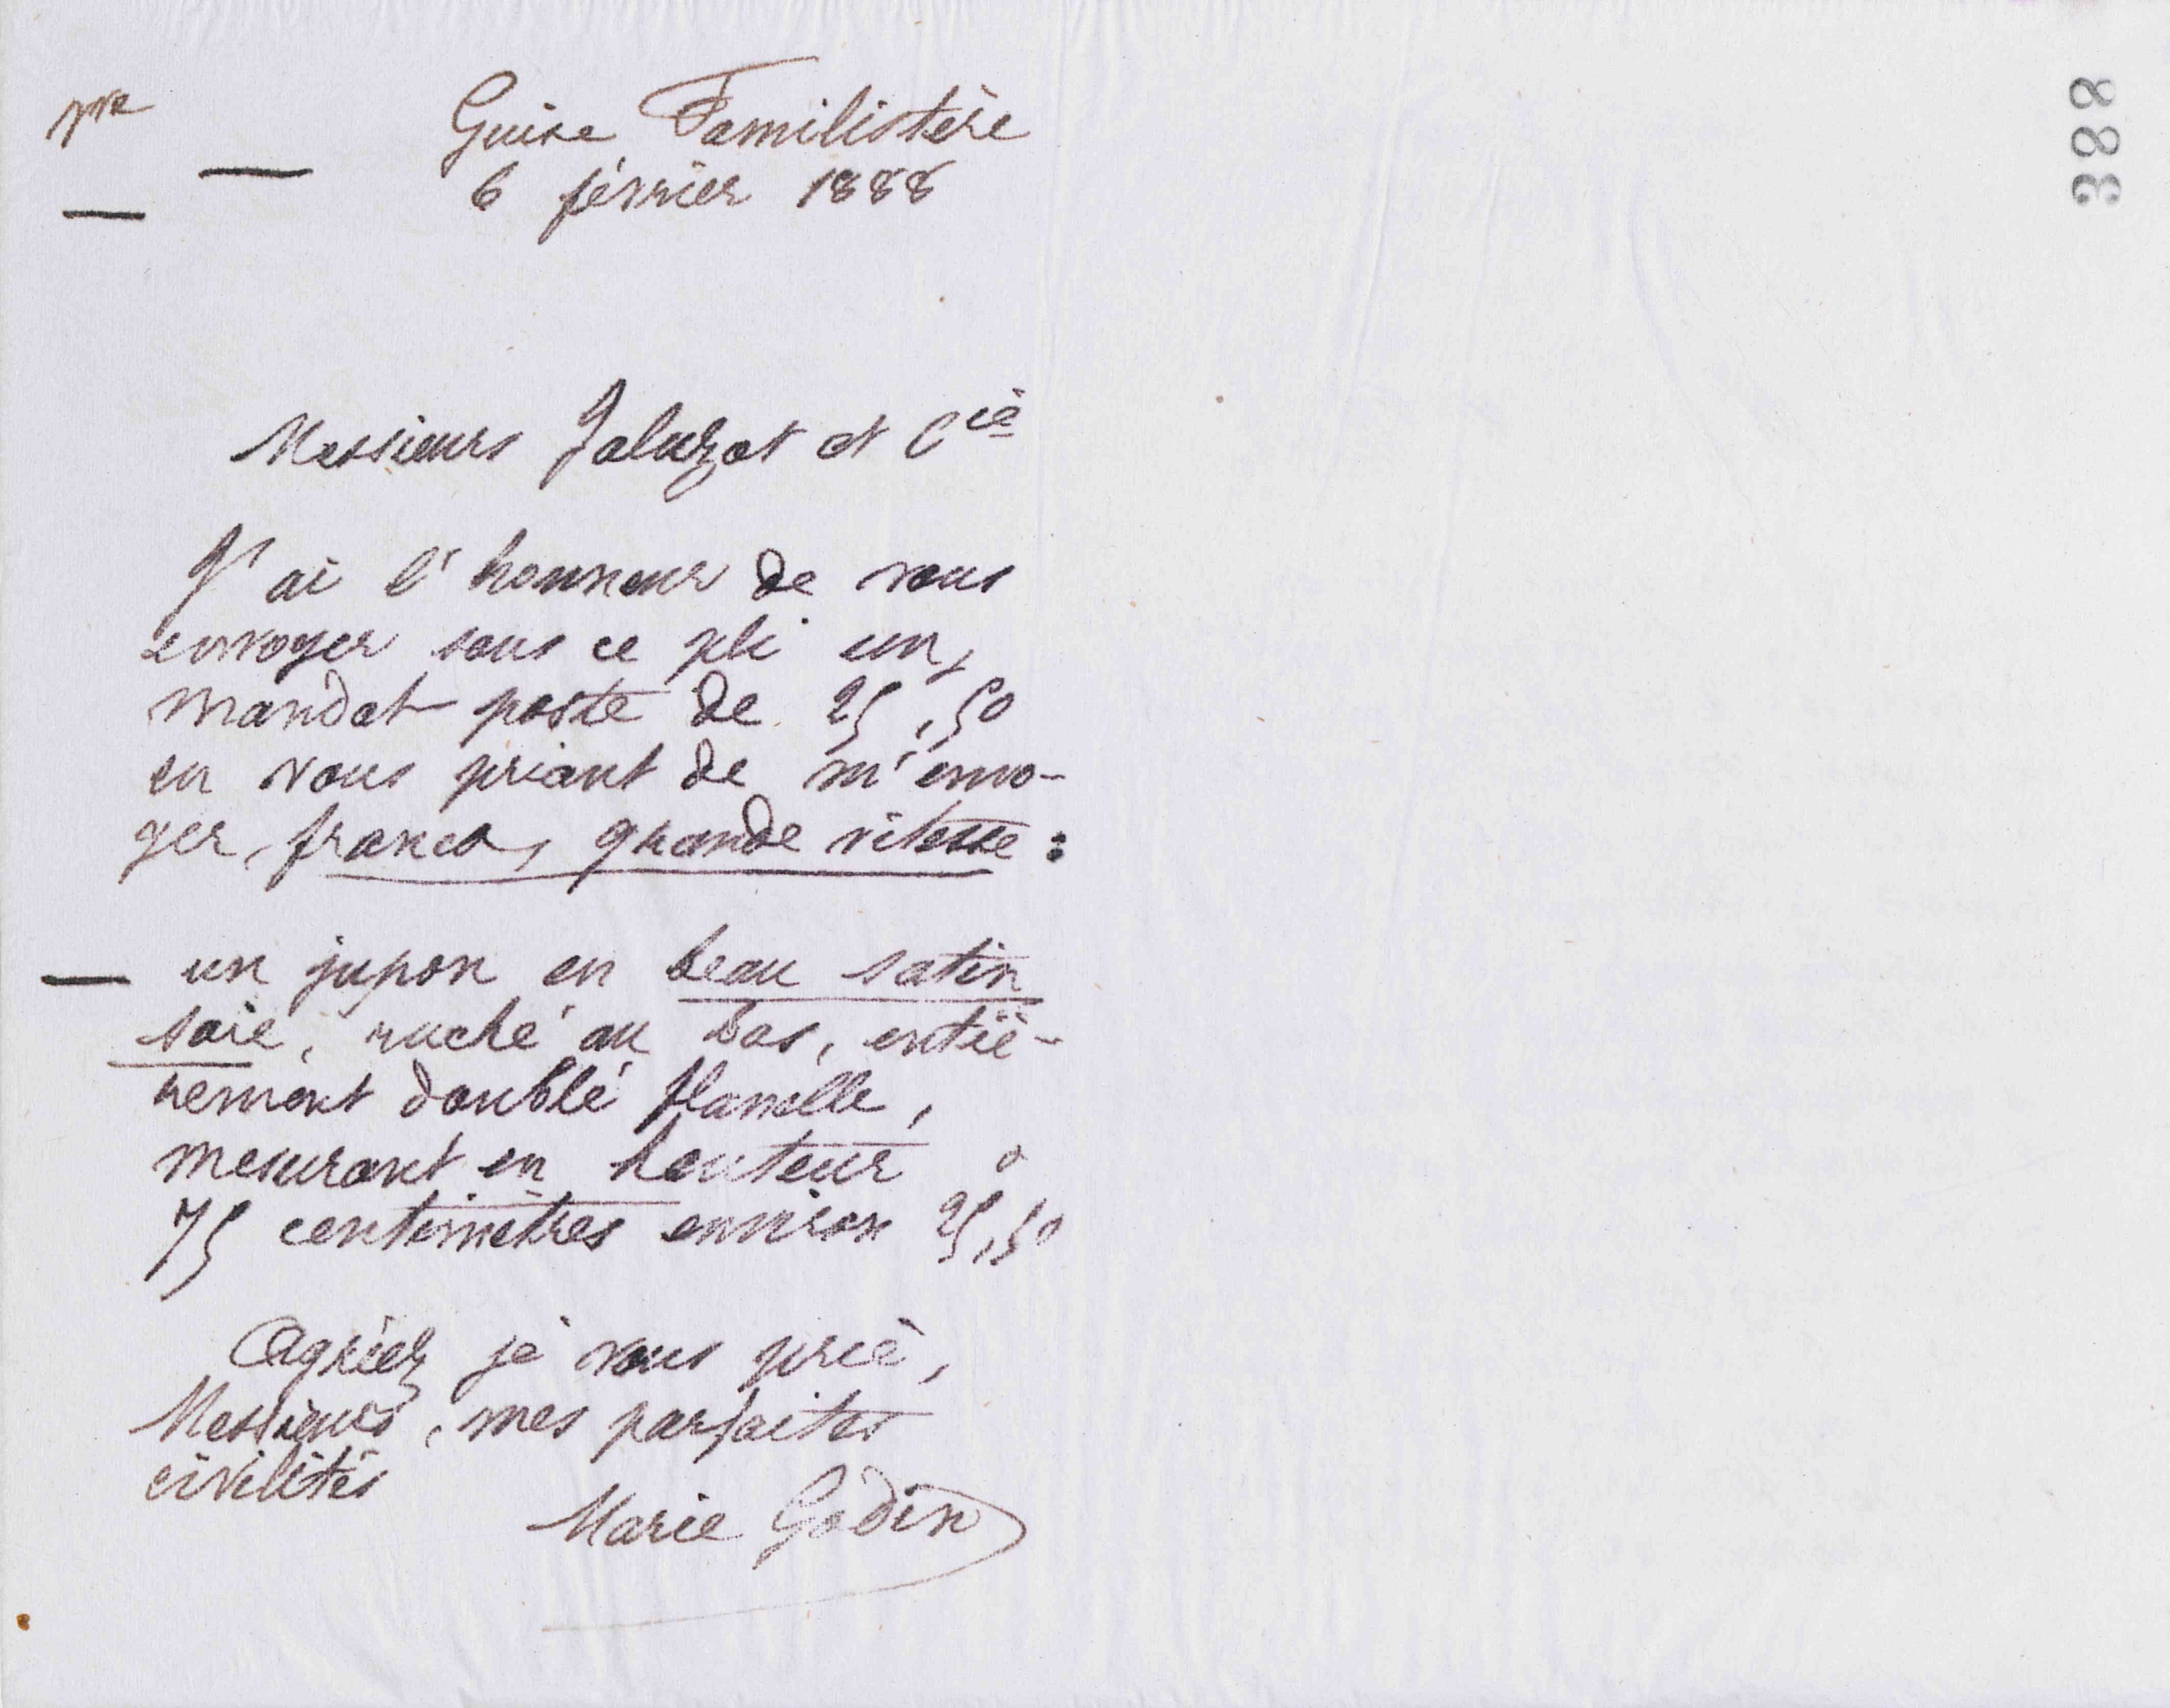 Guise Familistère
6 février 1888
388
Messieurs Jaluzot et Cie
J'ai l'honneur de vous
envoyer sous ce pli un
mandat poste de 25,50
en vous priant de m'envo-
yer, franco, grande vitesse :
— un jupon en beau satin
soie, ruché au bas, entiè-
rement doublé flanelle,
mesurant en hauteur
75 centimètres environ 25,50
Agréez je vous prie,
Messieurs, mes parfaites
civilités
Marie Godin